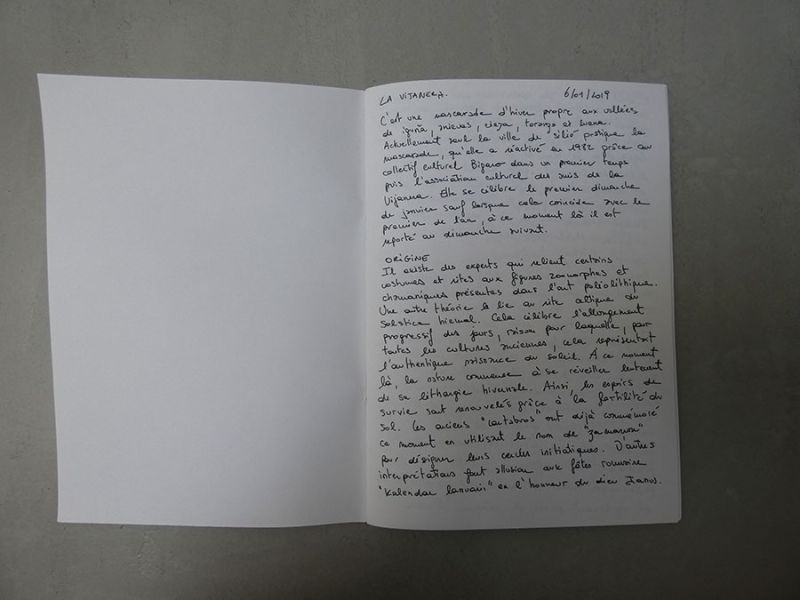 LA VIJANERA. 6/01/2019
C'est une mascarade d'hiver propre aux vallées
de iguña, anievas, cieza, toranzo et buena.
Actuellement seul la ville de silió pratique la
mascarade, qu'elle a réactivé en 1982 grâce au
collectif culturel Bigaro dans un premier temps
puis l'association culturel des amis de la
Vijanera. Elle se célèbre le premier dimanche
de janvier sauf lorsque cela coincide avec le
premier de l'an, à ce moment là il est
reporté au dimanche suivant.
ORIGINE
Il existe des experts qui relient certains
costumes et rites aux figures zoomorphes et
chamaniques présentes dans l'art paléolithique.
Une autre théorie le lie au rite celtique du
Solstice hiemal. Cela célèbre l'allongement
progressif des jours, raison pour laquelle, par
toutes les cultures anciennes, cela représentait
l'authentique naissance du soleil. À ce moment
là, la nature commence à se réveiller lentement
de sa lithargie hivernale. Ainsi, les espoirs de
survie sont renouvelés grâce à la fertilité du
sol. Les anciens "cantabros" ont déjà commémoré
ce moment en utilisant le nom de
pour désigner leurs cercles initiatiques. D'autres
interprétations font allusion aux fêtes romaine
"Kalendae Ianuarii" en l'honneur du dieu Janus.